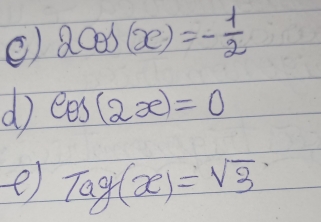 c) 2cos(x) = -1/2
d) cos(2x) = 0
e) Tag(x) = √3